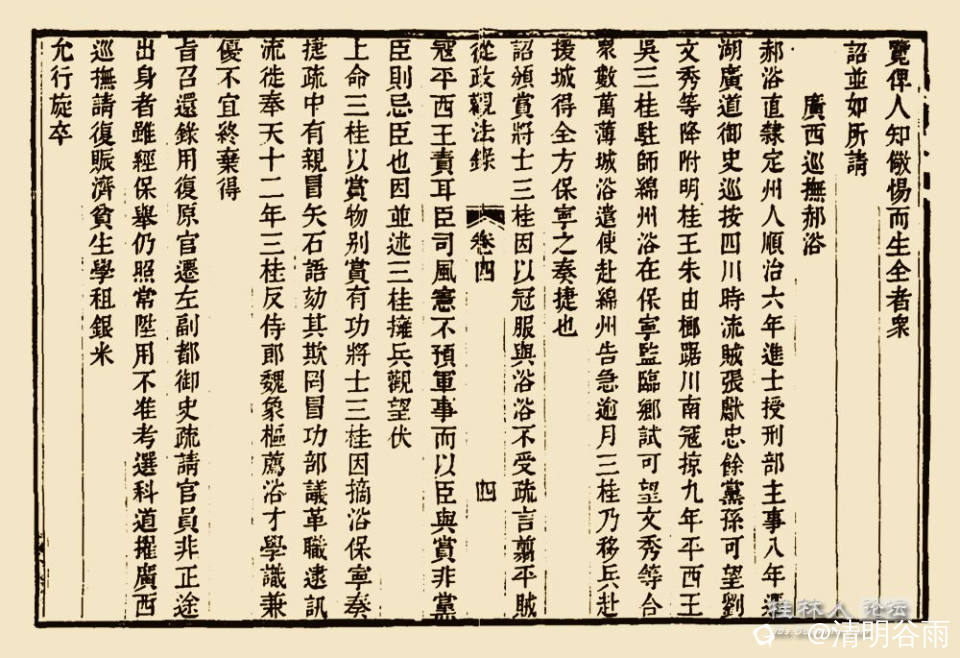 覽俾人知儆惕而生全者衆
詔並如所請
廣西巡撫郝浴
郝浴直隸定州人順治六年進士授刑部主事八年遷
湖廣道御史巡按四川時流賊張獻忠餘黨孫可望劉
文秀等降附明桂王朱由榔踞川南冦掠九年平西王
吳三桂駐師綿州浴在保寧監臨鄉試可望文秀等合
衆數萬薄城浴遣使赴綿州告急逾月三桂乃移兵赴
援城得全方保寧之奏捷也
詔頒賞將士三桂因以冠服與浴浴不受疏言翦平賊
從政觀法錄 卷四 四
冦平西王責耳臣司風憲不預軍事而以臣與賞非黨
臣則忌臣也因並述三桂擁兵觀望伏
上命三桂以賞物別賞有功將士三桂因摘浴保寧奏
捷疏中有親冒矢石語劾其欺罔冒功部議革職逮訊
流徙奉天十二年三桂反侍郎魏象樞薦浴才學識兼
優不宜終棄得
旨召還錄用復原官遷左副都御史疏請官員非正途
出身者雖經保舉仍照常陞用不准考選科道擢廣西
巡撫請復賑濟貧生學租銀米
允行旋卒
桂林人 论坛
@清明谷雨